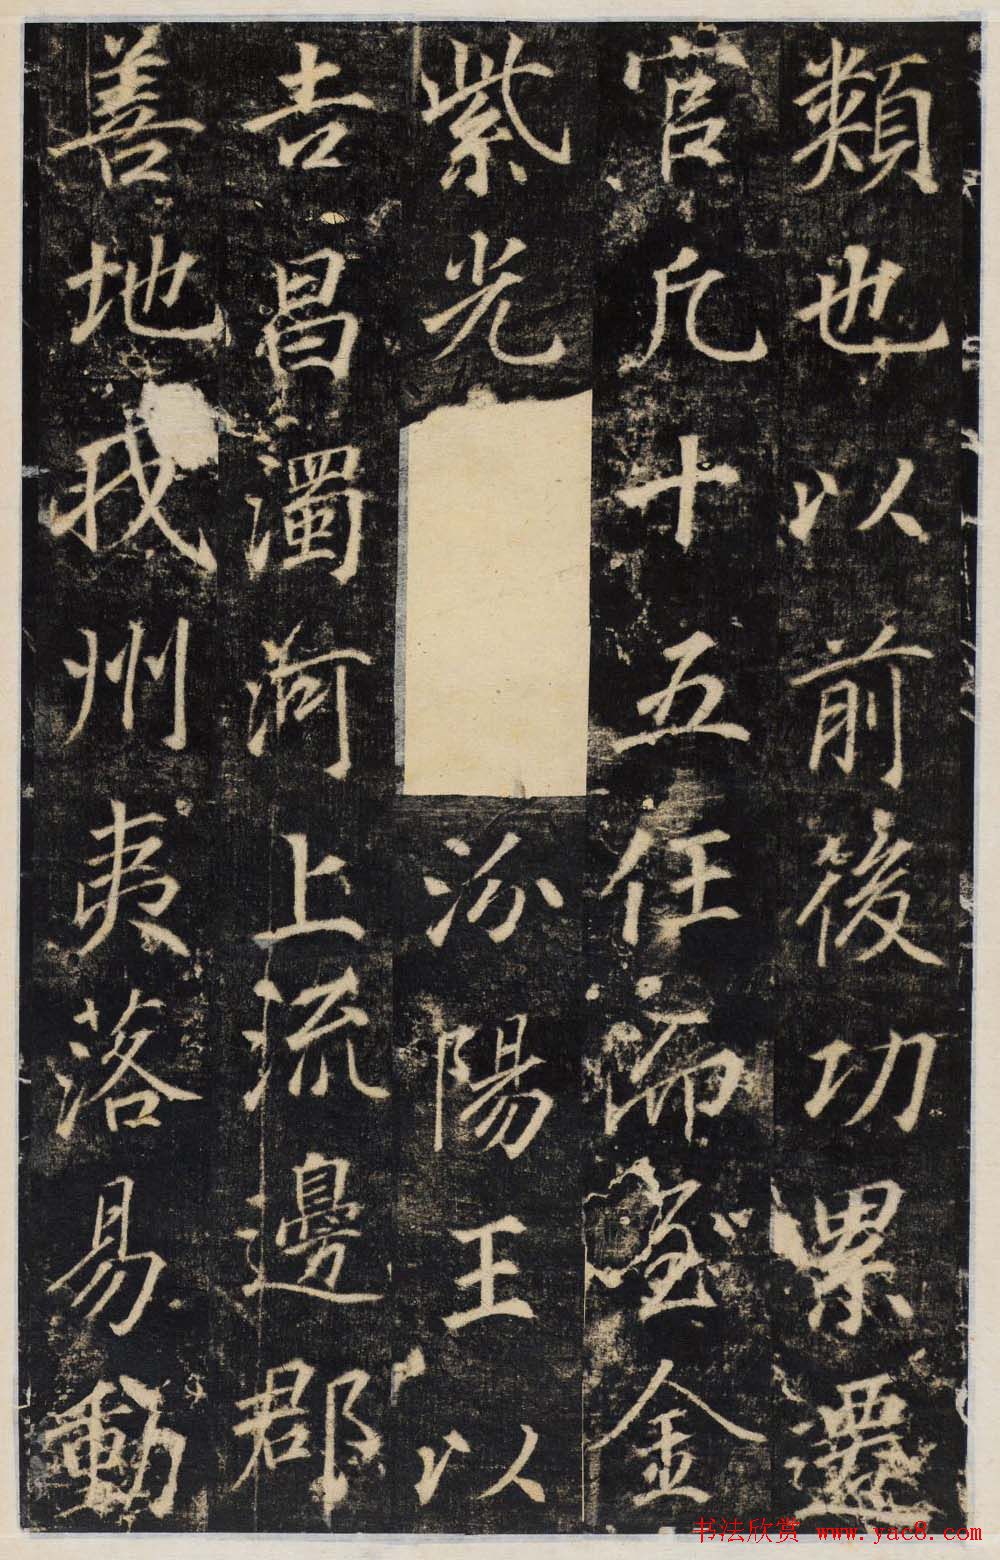 類也以前後功累遷
官凡十五任而至金
紫光汾陽王以
吉昌濁河上流邊郡
善地我州夷落易動
书法欣赏 www.yac8.com